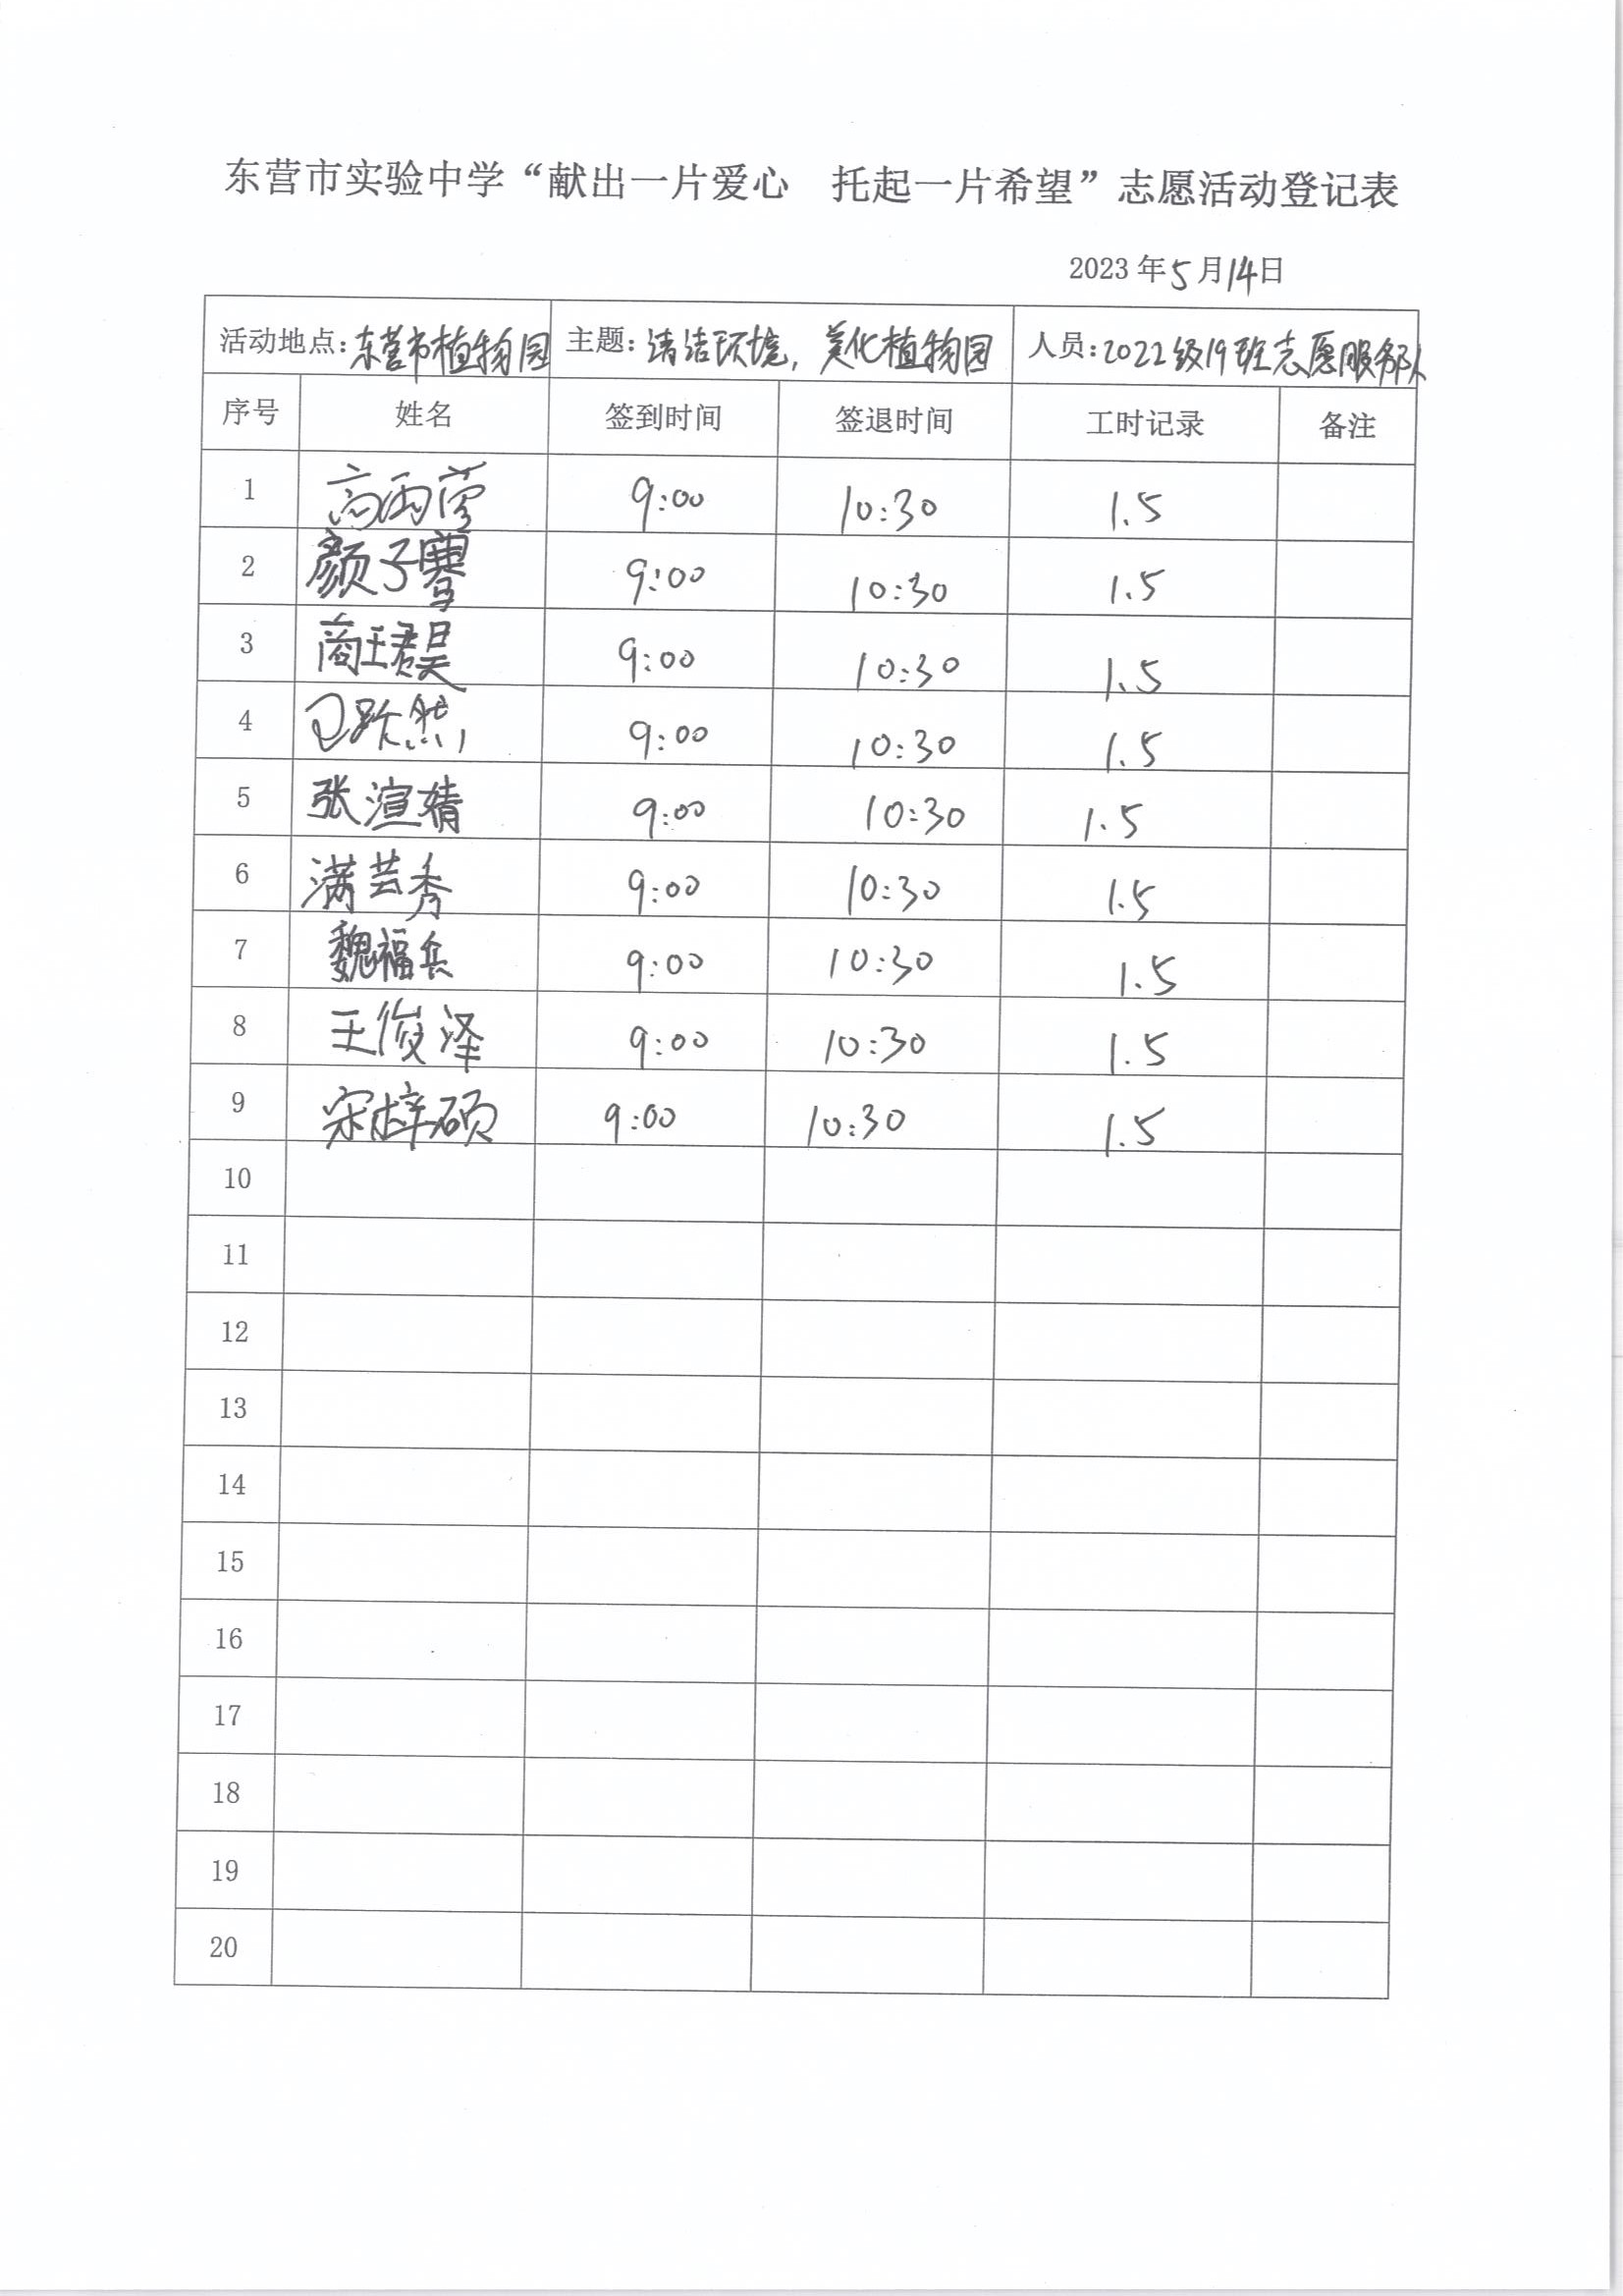 东营市实验中学“献出一片爱心 托起一片希望”志愿活动登记表
2023 年 5 月 14 日
活动地点：东营市植物园 主题：清洁环境，美化植物园 人员：2022级19班志愿服务队
序号 姓名 签到时间 签退时间 工时记录 备注
1 高雨萱 9:00 10:30 1.5
2 颜子骞 9:00 10:30 1.5
3 商王君昊 9:00 10:30 1.5
4 跃然 9:00 10:30 1.5
5 张渲婧 9:00 10:30 1.5
6 满芸秀 9:00 10:30 1.5
7 魏福兵 9:00 10:30 1.5
8 王俊泽 9:00 10:30 1.5
9 宋梓硕 9:00 10:30 1.5
10
11
12
13
14
15
16
17
18
19
20